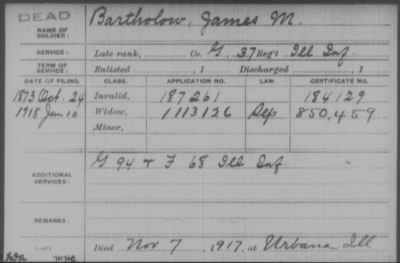 DEAD
NAME OF SOLDIER: Bartholow, James M.
SERVICE: Late rank, Co. G, 37 Reg't Ill Inf.
TERM OF SERVICE: Enlisted , 1 Discharged , 1
DATE OF FILING. CLASS. APPLICATION NO. LAW. CERTIFICATE NO.
1873 Oct. 24 Invalid, 187261 184129
1918 Jan 10 Widow, 1113126 850,459
Minor,
ADDITIONAL SERVICES: G 94 + F 68 Ill Inf. -
REMARKS:
Died Nov 7, 1917, at Urbana Ill